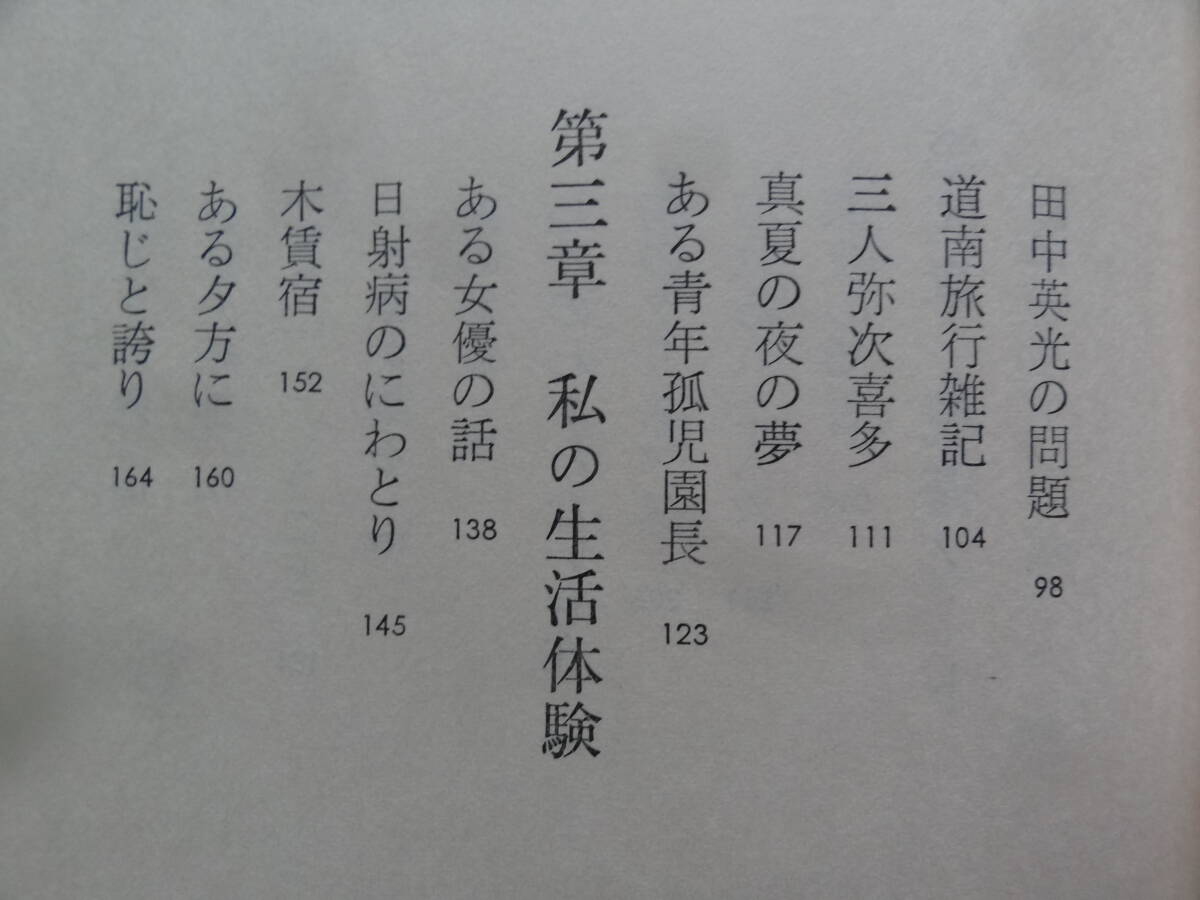 田中英光の問題 98
道南旅行雑記 104
三人弥次喜多 111
真夏の夜の夢 117
ある青年孤児園長 123
第三章 私の生活体験
ある女優の話 138
日射病のにわとり 145
木賃宿 152
ある夕方に 160
恥じと誇り 164